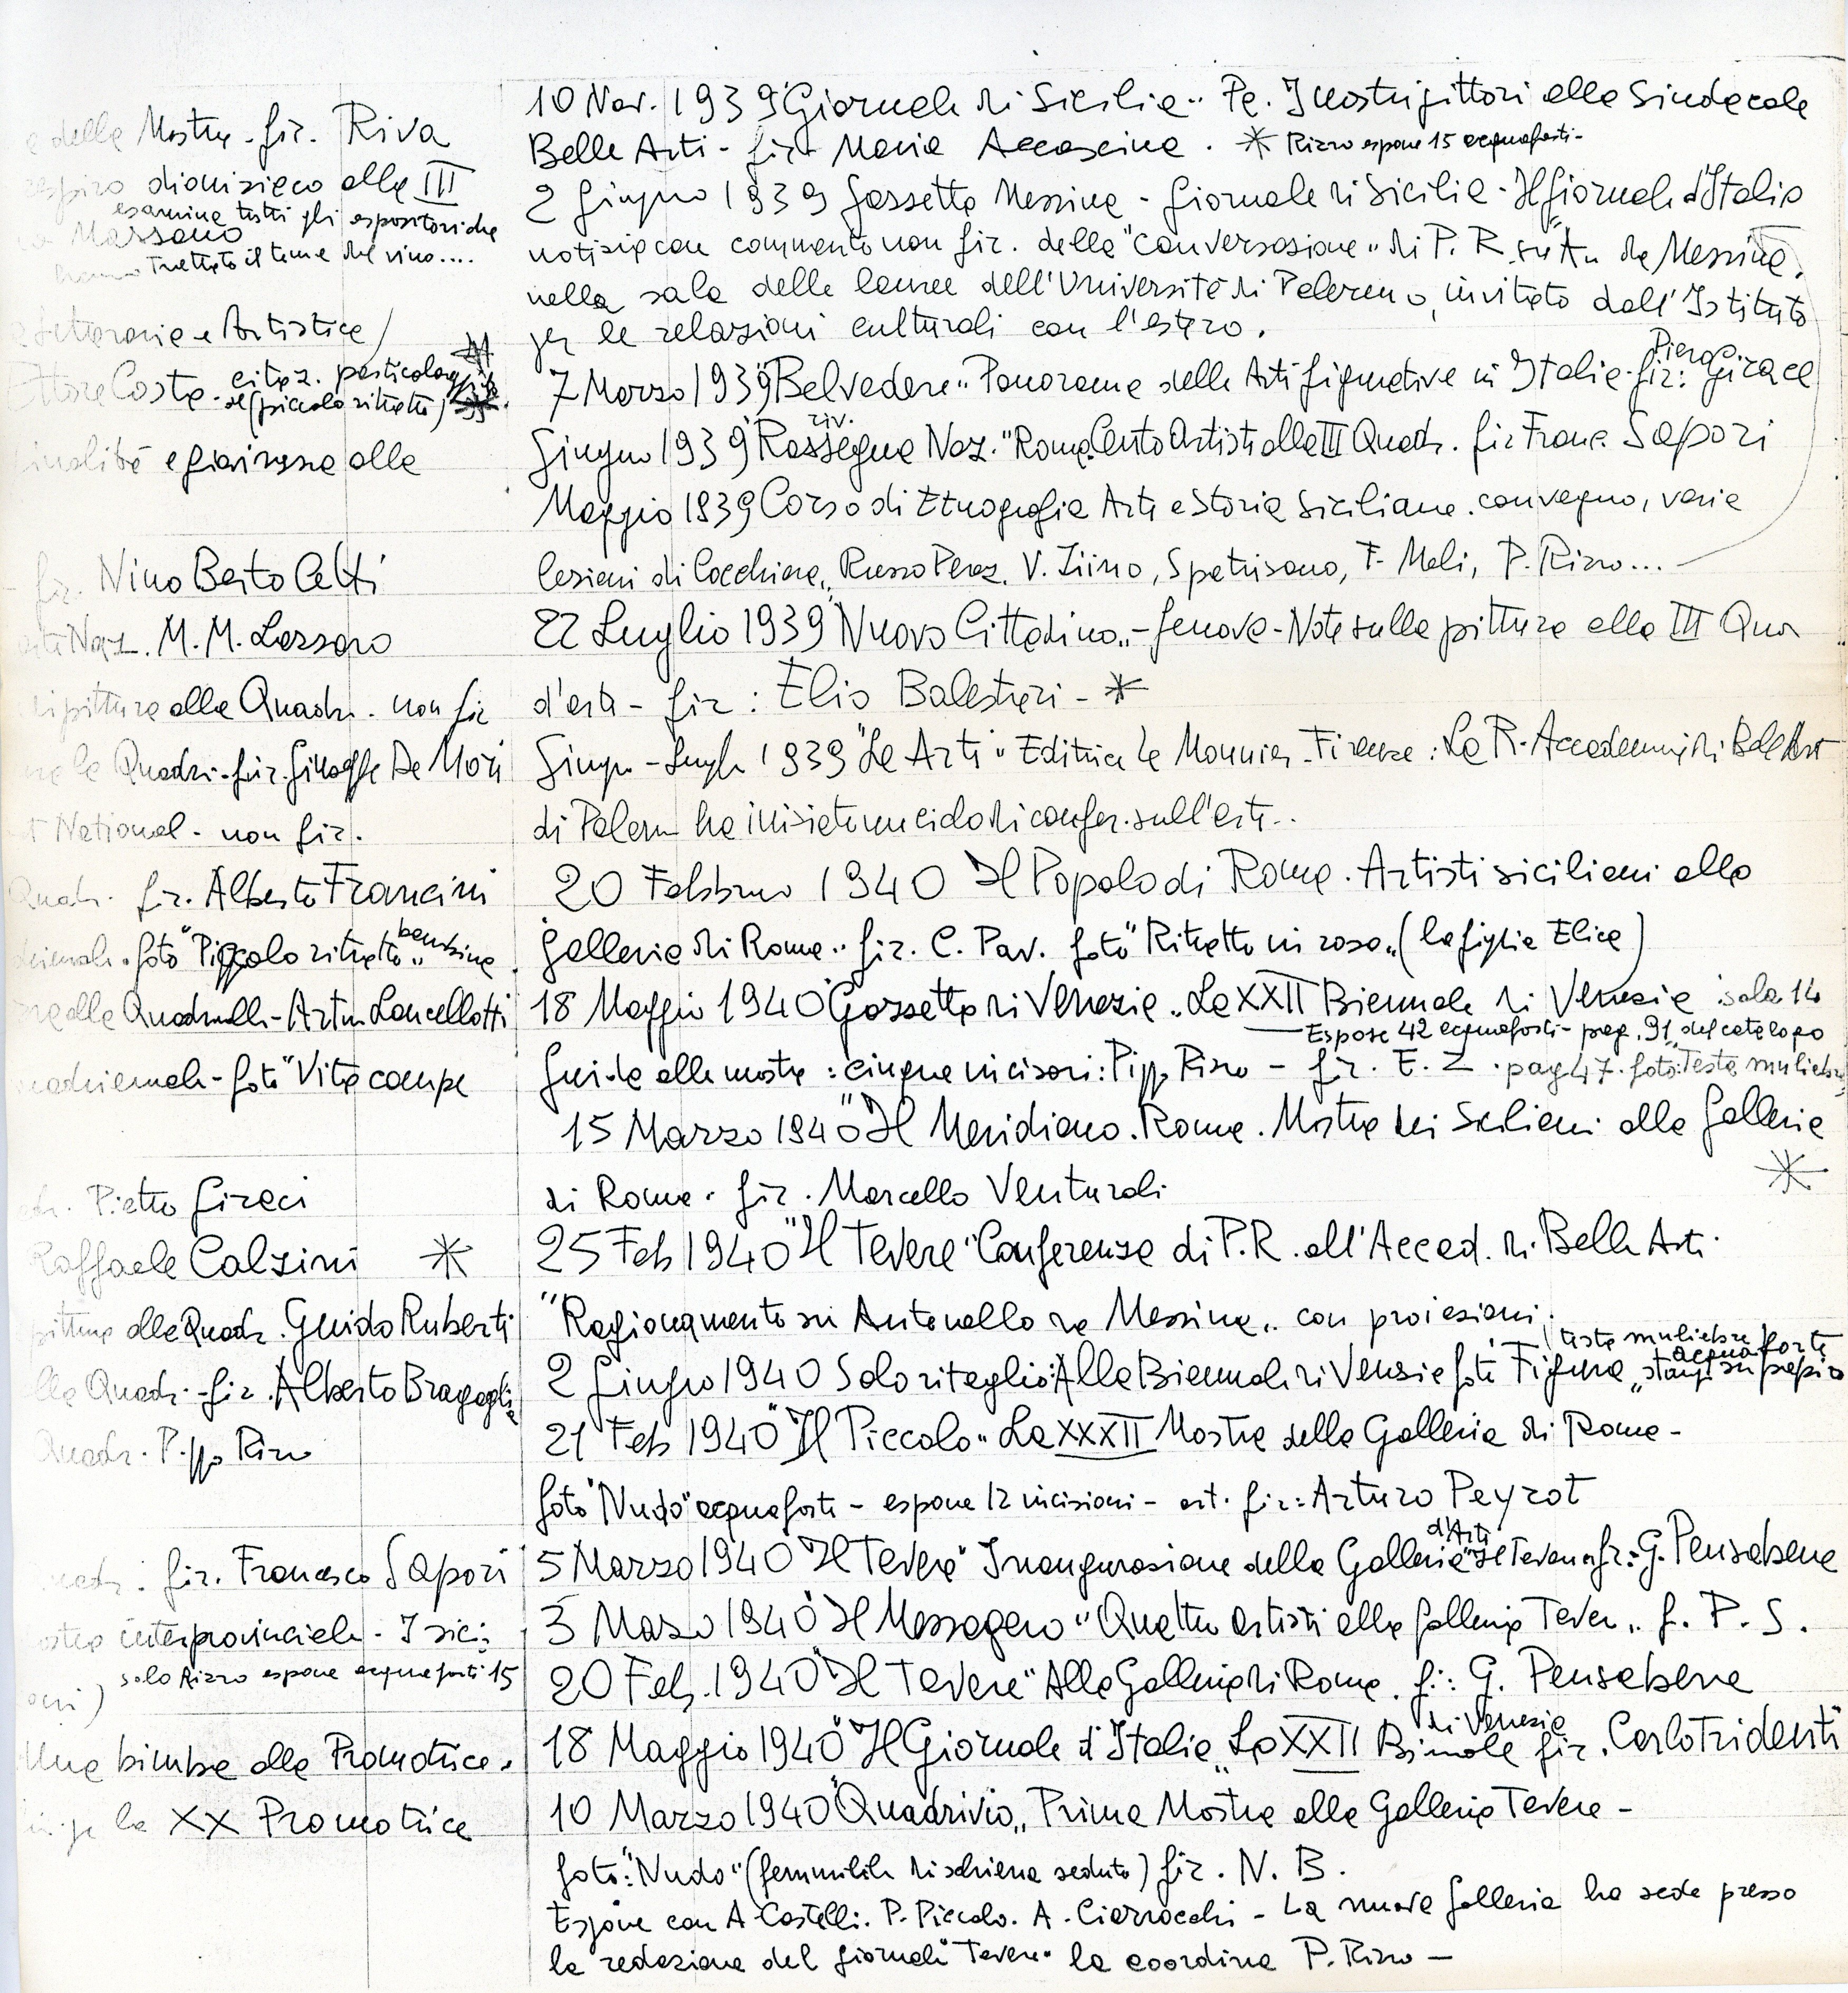 e delle Mostre - fir. Riva
respiro dionisiaco alla III
esamina tutti gli espositori che
Massano
hanno trattato il tema del vino....
e Letteraria e Artistica
Ettore Costa - citaz. particolare
al (piccolo ritratto)
alla
fir. Nino Berto Celti
M. M. Lazzaro
pittura alla Quadr. non fir
la Quadri. fir. Giuseppe De Mori
National - non fir.
Quadr. fir. Alberto Francini
foto "Piccolo ritratto" bambina
alla Quadriennale - Artur Lancellotti
foto "Vita campe
Pietro Giraci
Raffaele Calzini *
alla Quadr. Guido Ruberti
alla Quadr. - fir. Alberto Bragaglia
Quadr. Pippo Rizzo
fir. Francesco Sapori
interprovinciale - I sici:
solo Rizzo espone acqueforti 15
Una bimba alla Promotrice.
la XX Promotrice
10 Nov. 1939 "Giornale di Sicilia" Pa. I nostri pittori alla Sindacale
Belle Arti - fir. Maria Accascina. * Rizzo espone 15 acqueforti -
2 Giugno 1939 Gazzetta Messina - Giornale di Sicilia - Il Giornale d'Italia
notizia con commento non fir. della "conversazione" di P. R. su An. da Messina.
nella sala delle lauree dell'Università di Palermo, invitato dall'Istituto
per le relazioni culturali con l'estero.
7 Marzo 1939 "Belvedere" Panorama delle Arti figurative in Italia - fir: Piero Girace
Giugno 1939 "riv. Rassegna Naz." Roma. Cento Artisti alla III Quadr. fir Franc. Sapori
Maggio 1939 Corso di Etnografia Arte e Storia Siciliana. convegno, varie
lezioni di Cocchiara, Russo Perez, V. Ziino, Spatrisano, F. Meli, P. Rizzo...
22 Luglio 1939 "Nuovo Cittadino" - Genova - Note sulla pittura alla III Qua
d'arte - fir: Elio Balestreri - *
Giugn - Lugl 1939 "Le Arti" Editrice Le Monnier - Firenze: La R. Accademia di Belle Art
di Palerm ha iniziato un ciclo di confer. sull'arte..
20 Febbraio 1940 Il Popolo di Roma. Artisti siciliani alla
Galleria di Roma" fir. C. Pav. foto "Ritratto in rosa" (la figlia Elica)
18 Maggio 1940 "Gazzetta di Venezia" La XXII Biennale di Venezia sala 14
Espose 42 acqueforti - pag. 91 del catalogo
Guida alla mostra: cinque incisori: Pipp. Rizzo - fir. E. Z. pag 47. foto: Testa muliebre
15 Marzo 1940 "Il Meridiano. Roma. Mostra dei Siciliani alla Galleria
di Roma. fir. Marcello Venturoli *
25 Feb 1940 "Il Tevere" Conferenza di P. R. all'Accad. di Belle Arti.
"Ragionamento su Antonello da Messina" con proiezioni.
2 Giugno 1940 Solo ritaglio: Alla Biennale di Venezia foto Figura (testa muliebre) acquaforte "stamp. su papiro
21 Feb 1940 "Il Piccolo" La XXXII Mostra della Galleria di Roma -
foto "Nudo" acquaforte - espone 12 incisioni - art. fir: Arturo Peyrot
5 Marzo 1940 "Il Tevere" Inaugurazione della Galleria d'Arte "Il Tevere" fir: G. Pensabene
3 Marzo 1940 "Il Messagero" "Quattro artisti alla Galleria Tevere" f. P. S.
20 Feb. 1940 "Il Tevere" Alla Galleria di Roma. fi: G. Pensabene
18 Maggio 1940 "Il Giornale d'Italia" La XXII Biennale di Venezia fir. Carlo Tridenti
10 Marzo 1940 "Quadrivio" Prima Mostra alla Galleria Tevere -
foto: "Nudo" (femminile di schiena seduto) fir. N. B.
Espone con A. Castelli. P. Piccolo. A. Ciarrocchi - La nuova Galleria ha sede presso
la redazione del giornale "Tevere" la coordina P. Rizzo -